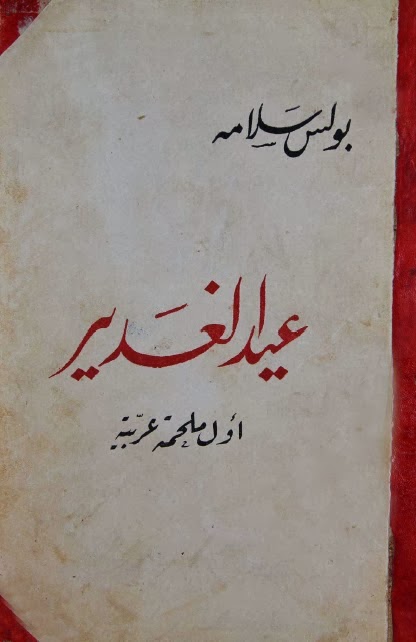 بولس سلامه
عيد الغدير
أول ملحمة عربية